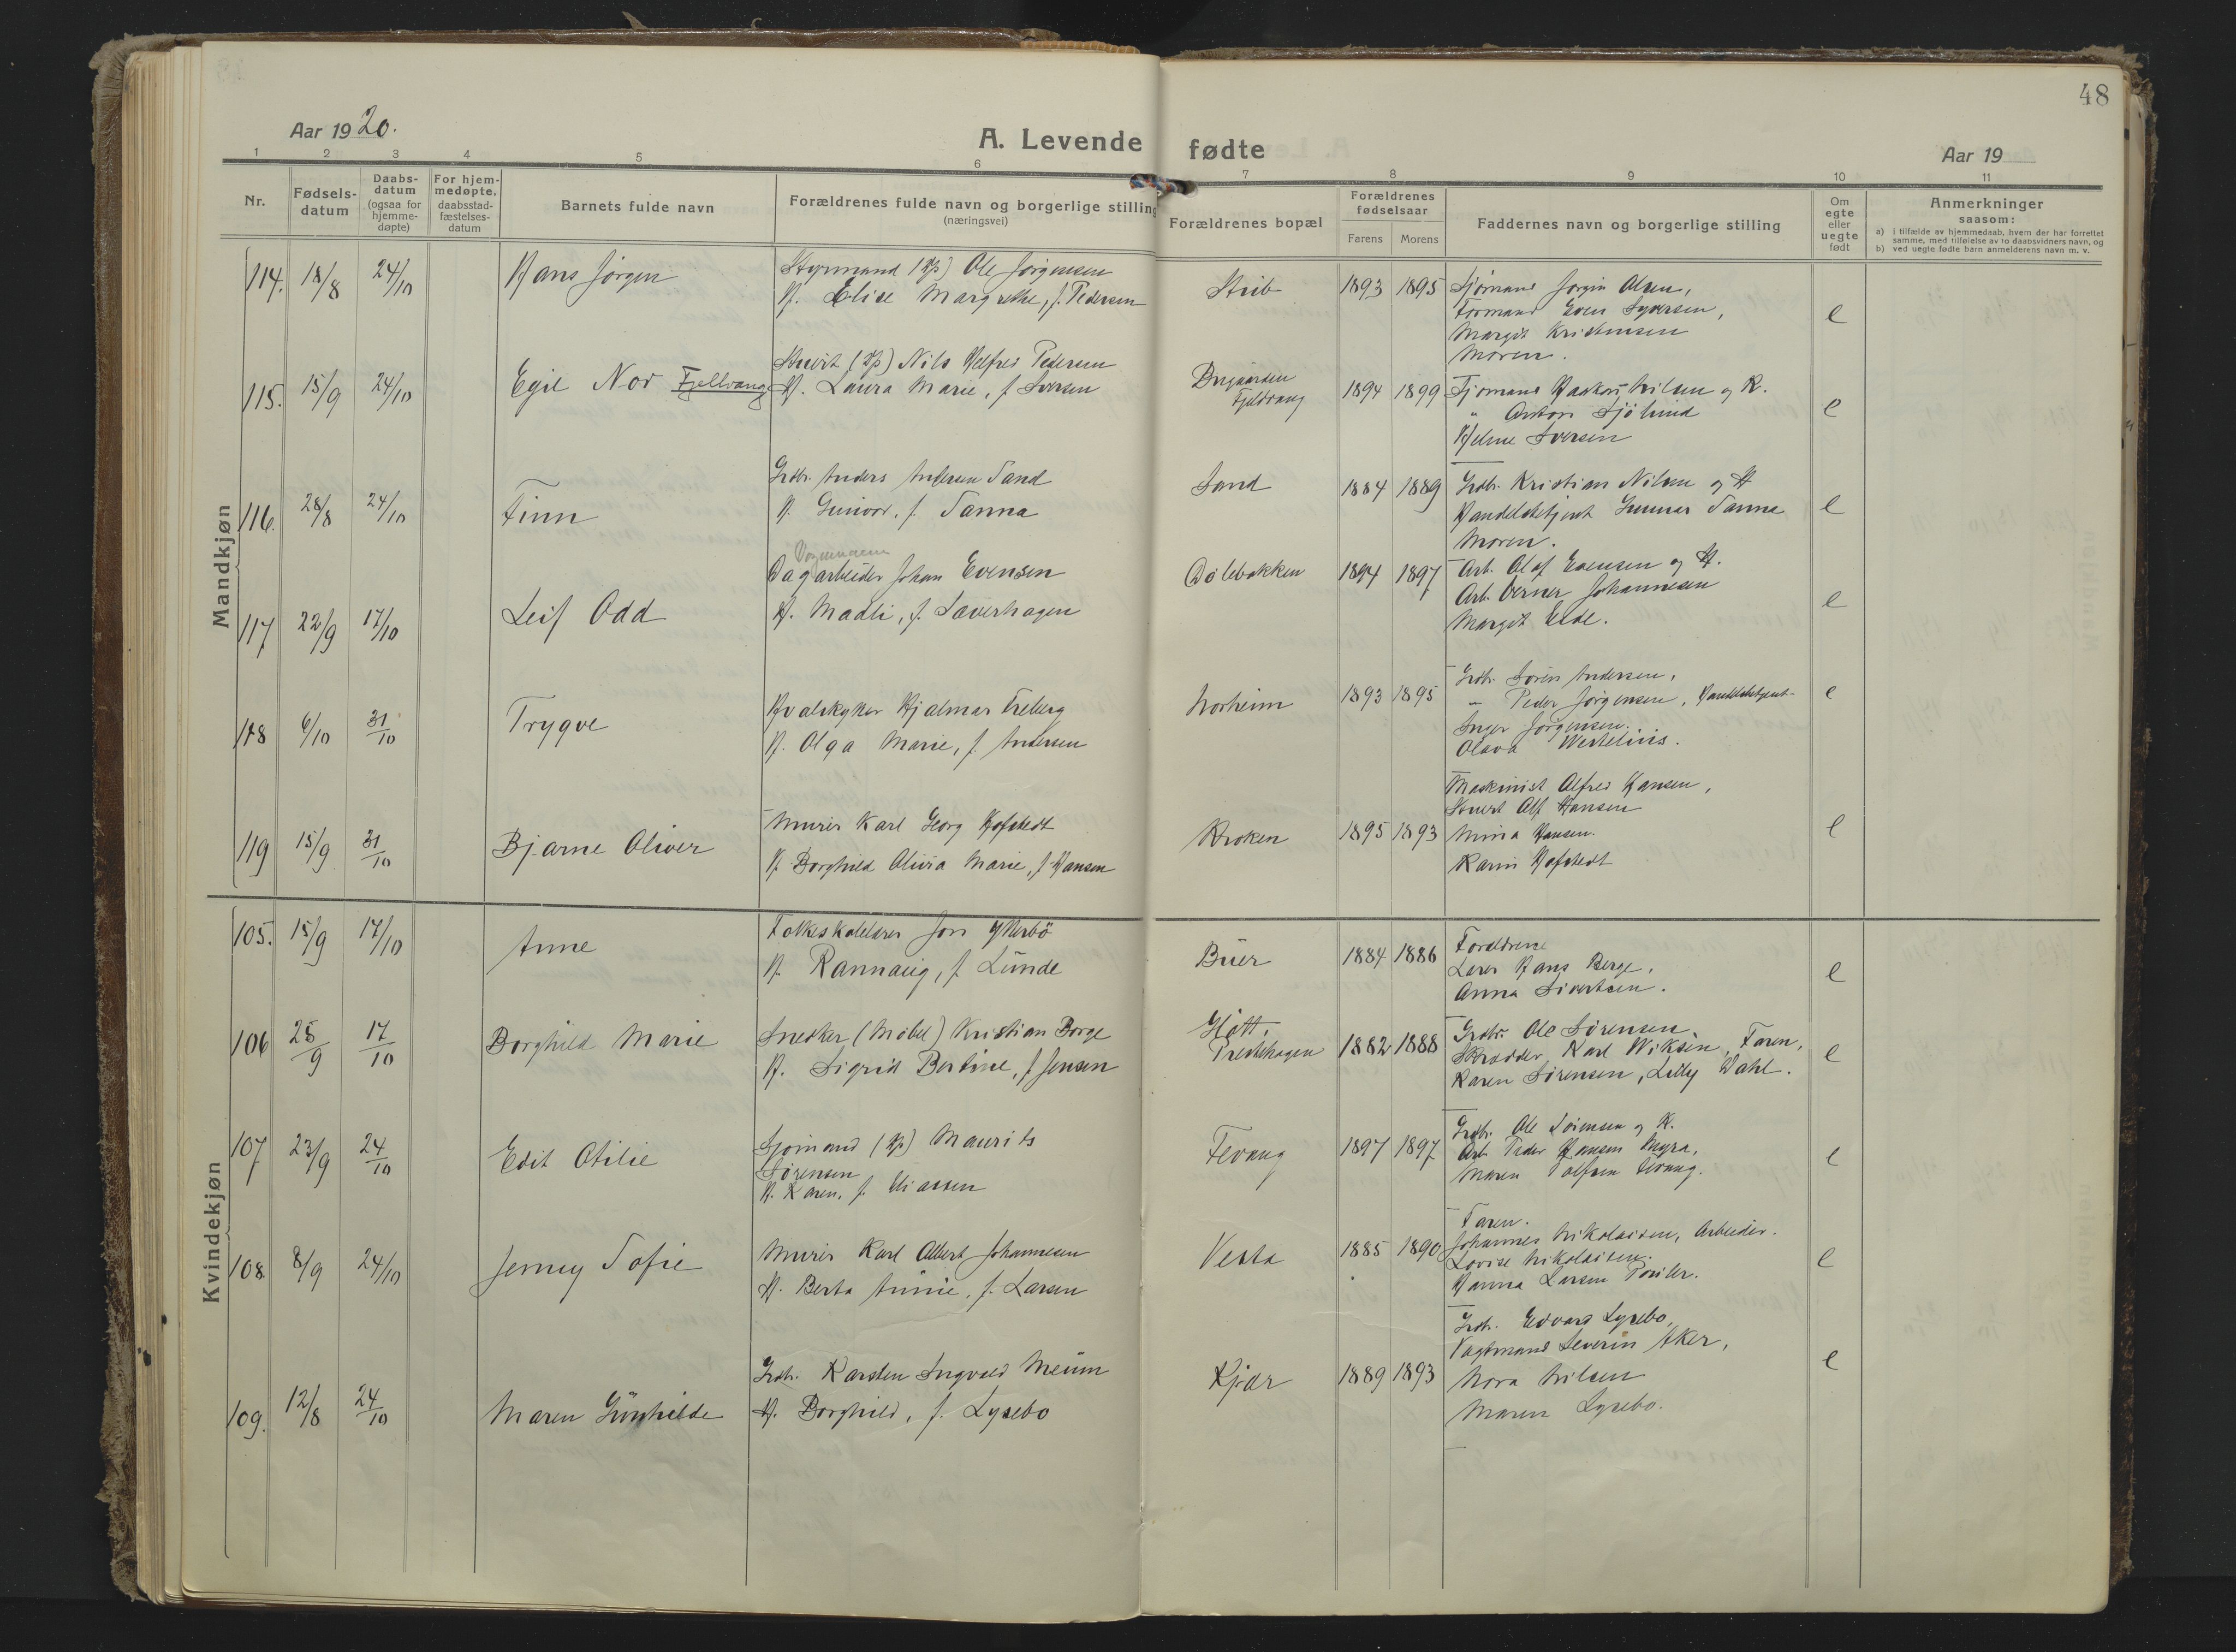 48
Aar 1920.
A. Levende fødte
Aar 19
1 2 3 4 5 6 7 8 9 10 11
Nr.
Fødsels-
datum
Daabs-
datum
(ogsaa for
hjemme-
døpte)
For hjem-
medøpte,
daabsstad-
fæstelses-
datum
Barnets fulde navn
Forældrenes fulde navn og borgerlige stilling
(næringsvei)
Forældrenes bopæl
Forældrenes
fødselsaar
Farens Morens
Faddernes navn og borgerlige stilling
Om
egte
eller
uegte
født
Anmerkninger
saasom:
a) i tilfælde av hjemmedaab, hvem der har forrettet
samme, med tilføielse av to daabsvidners navn, og
b) ved uegte fødte barn anmelderens navn m. v.
Mandkjøn
114. 18/8 24/10 Hans Jørgen
Styrmand Ole Jørgensen
H. Elise Margrethe, f. Pedersen
1893 1895
Sjømand Jørgen Olsen,
Formand Even Syversen,
Margit Kristensen
Moren.
e
115. 15/9 24/10 Egil Nor Fjellvang
Nils Pedersen
H. Laura Marie, f. Iversen
Fjeldvang
1894 1899
Sjømand Haakon Nilsen og H.
" Anton Sjölund
Iversen
e
116. 28/8 24/10 Finn
Grdbr. Anders Andersen Sand
H. Gunvor, f. Sanna
Sand
1884 1889
Grdbr. Kristian Nilsen og H
Handelsbetjent Gunnar Sanna
Moren.
e
117 22/9 17/10 Leif Odd
Dagarbeider Johan Evensen
H. Madli, f. Laverhagen
Dølebakken
1894 1897
Arb. Olaf Evensen og H.
Arb. Verner Johannesen
Margit Eide.
e
118 6/10 31/10 Trygve
Hvalskytter Hjalmar Treberg
H. Olga Marie, f. Andersen
Norheim
1893 1895
Grdbr. Søren Andersen,
" Peder Jørgensen, Handelsbetjent
Inger Jørgensen.
Olava
e
119 15/9 31/10 Bjarne Oliver
Murer Karl Georg Hofstedt
H. Borghild Olivia Marie, f. Hansen
Kroken
1895 1893
Maskinist Alfred Hansen,
Alf Hansen
Mina Hansen.
Karin Hofstedt
e
Kvindekjøn
105. 15/9 17/10 Anne
Folkeskolelærer Jon Ytterbö
H. Rannaug, f. Lunde
Buer
1884 1886
Forældrene
Lærer Hans Berge,
Anna Sivertsen.
e
106 25/9 17/10 Borghild Marie
Snedker (Møbel) Kristian Borge
H. Sigrid Bertine, f. Jensen
Prestehagen
1882 1888
Grdbr. Ole Sörensen,
Skrædder Karl Wiksen, Faren,
Karen Sörensen, Lilly Dahl.
e
107 23/9 24/10 Edit Otilie
Sjømand Maurits
Sørensen
H. Karen, f. Eliassen
Tevang
1897 1897
Grdbr. Ole Sørensen og H.
Arb. Peder Hansen Myra,
Maren Tevang.
e
108 8/9 24/10 Jenny Sofie
Murer Karl Albert Johannesen
H. Berta Annie, f. Larsen
Vesta
1885 1890
Faren.
Johannes Nikolaisen, Arbeider.
Lovise Nikolaisen.
Hanna Larsen
e
109. 12/8 24/10 Maren Gunhilde
Grdbr. Karsten Ingvald Meum
H. Borghild, f. Lysebo
Kjær
1889 1893
Grdbr. Edvard Lysebo,
Vagtmand Severin Aker,
Nora Nilsen
Maren Lysebo.
e